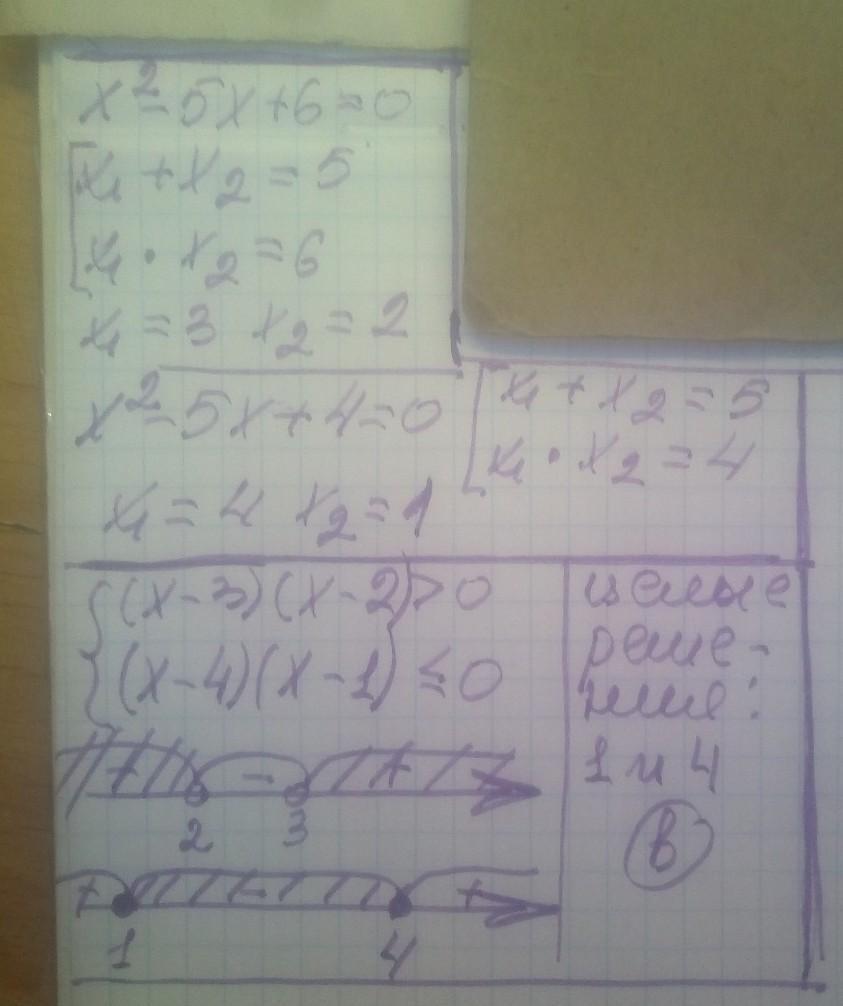 x²-5x+6=0
x₁+x₂=5
x₁·x₂=6
x₁=3 x₂=2
x²-5x+4=0
x₁+x₂=5
x₁·x₂=4
x₁=4 x₂=1
(x-3)(x-2)>0
(x-4)(x-1)≤0
+ - +
2 3
+ - +
1 4
целые
реше-
ние:
1 и 4
в